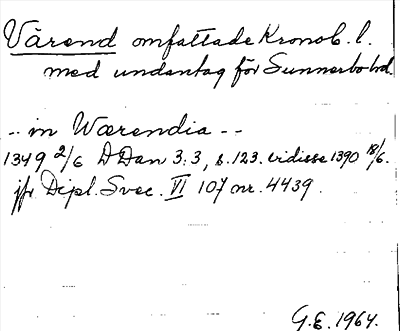 Värend omfattade Kronob. l.
med undantag för Sunnerbo hd.
-- in Wærendia --
1349 2/6 DDan 3:3, s. 123. vidisse 1390 18/6.
jfr Dipl. Svec. VI 107 nr. 4439.
G.E. 1964.